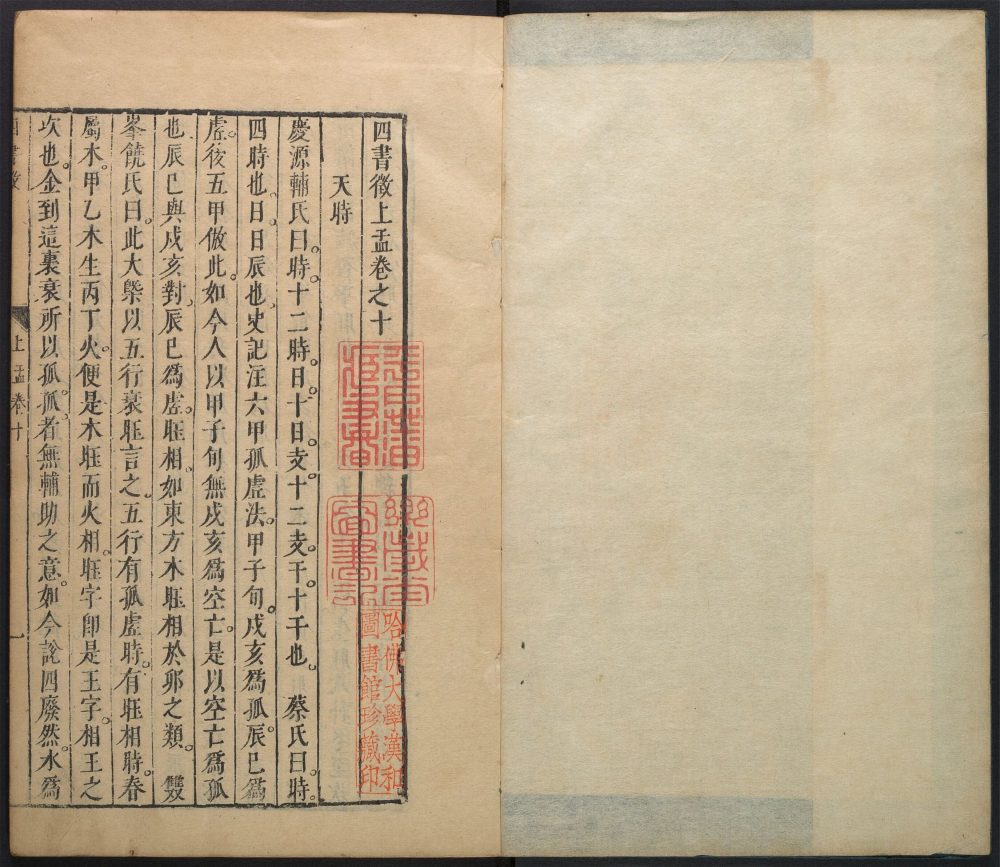 四書徵上孟卷之十
天時
慶源輔氏曰。時。十二時。日。十日。支。十二支。干。十干也。蔡氏曰。時。
四時也。日。日辰也。史記注六甲孤虛法。甲子旬。戌亥爲孤。辰巳爲
虛。後五甲倣此。如今人以甲子旬無戌亥爲空亡。是以空亡爲孤
也。辰巳與戌亥對。辰巳爲虛。眰相。如東方木眰相於卯之類。雙
峯饒氏曰。此大槩以五行衰眰言之。五行有孤虛時。有眰相時。春
屬木。甲乙木生丙丁火。便是木眰而火相。眰字卽是王字。相王之
次也。金到這裏衰。所以孤。孤者無輔助之意。如今說四廢然。水爲
四書徵
上孟卷十
一
哈佛大學漢和
圖書館珍藏印